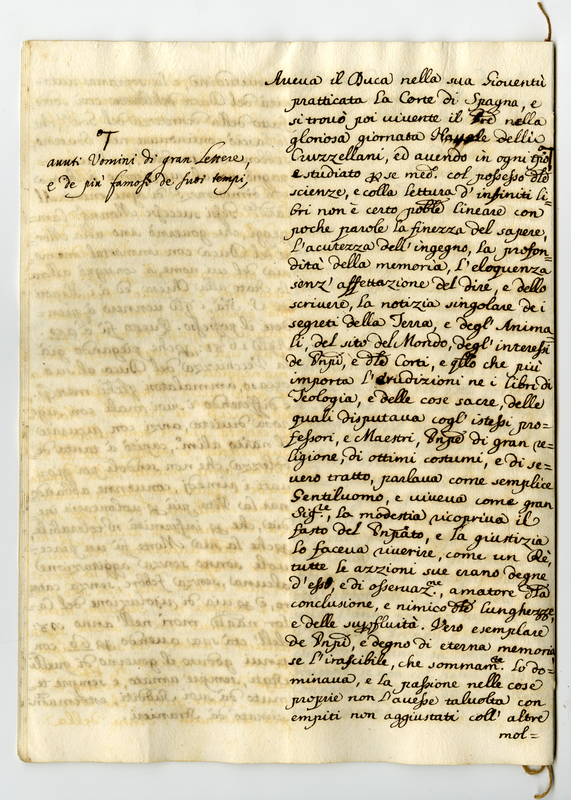 Aveva il Duca nella sua Gioventù
pratticata la Corte di Spagna, e
si trovò poi vivente il Prè nella
gloriosa giornata delli
Cruzzellani, ed avendo in ogni tpõ
e studiato se med.º col possesso dłe
scienze, e colla lettura d'infiniti li=
bri non è certo poble lineare con
poche parole la finezza del sapere,
l'acutezza dell'ingegno, la profon=
dità della memoria, l'eloquenza
senz'affettazione del dire, e dello
scrivere, la notizia singolare de i
segreti della Terra, e degl'Anima=
li, del sito del Mondo, degl'interessi
de Pnpi, e dłe Corti, e qllo che più
importa l'erudizioni ne i libro di
Teologia, e delle cose sacre, delle
quali disputava cogl'istessi pro=
fessori, e Maestri, Pnpe di gran re=
ligione, di ottimi costumi, e di se=
vero tratto, parlava come semplice
Gentiluomo, e viveva come gran
Sig.re, la modestia ricopriva il
fasto del Pnpato, e la giustizia
lo faceva riverire, come un Rè,
tutte le azzioni sue erano degne
d'esso, e di osservaz.ne, amatore dła
conclusione, e nimico dłe lunghezze,
e delle supfluità. Vero esemplare
de Pnpi, e degno di eterna memoria
se l'irascibile, che sommam.te lo do=
minava, e la passione nelle cose
proprie non l'avesse talvolta con
empiti non aggiustati coll'altre
mol=
avuti Uomini di gran lettere,
e de più famosi de suoi tempi,